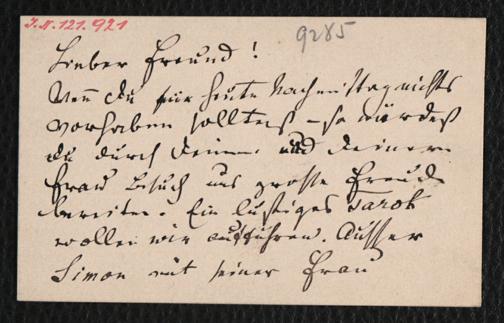 J.N. 121.921
9285
Lieber Freund!
Wenn du für heute Nachmittag nichts
vorhaben solltest – so würdest
du durch deinen und deiner
Frau Besuch uns große Freude
bereiten. Ein lustiges Tarok
wollen wir ausführen. Ausser
Simon mit seiner Frau